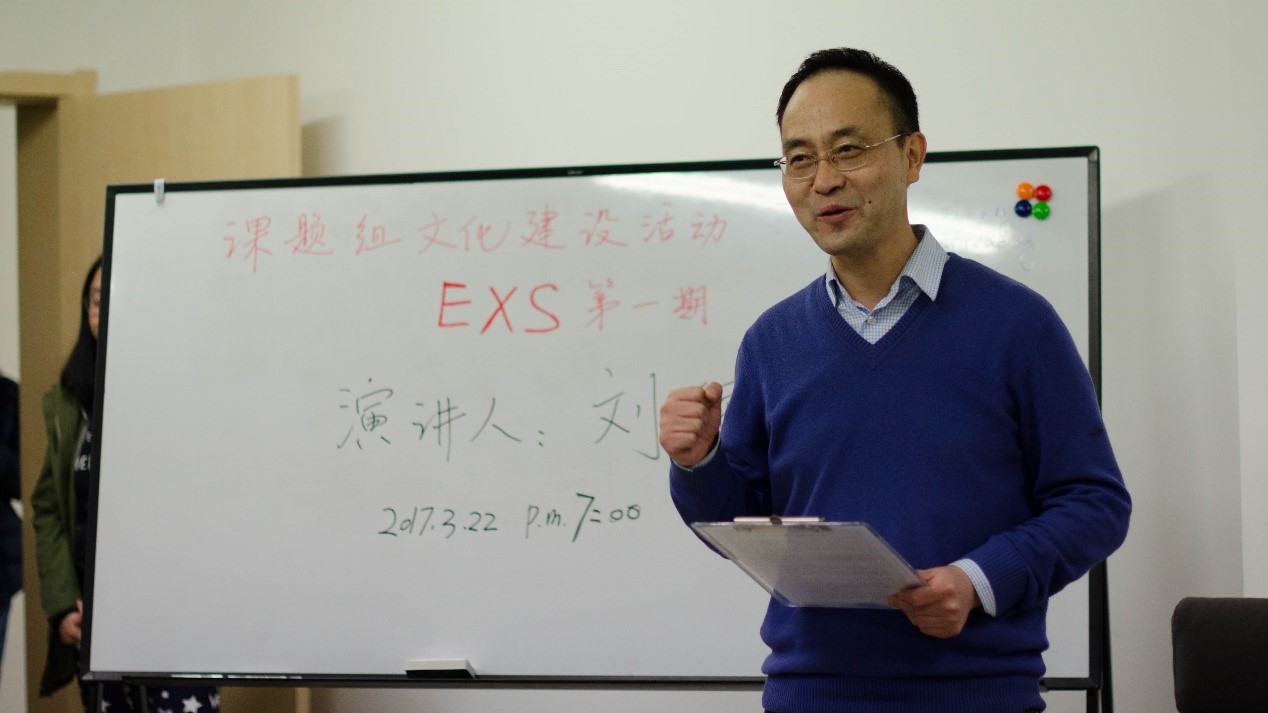 课题组文化建设活动
EXS 第一期
演讲人: 刘
2017.3.22 p.m.7:00